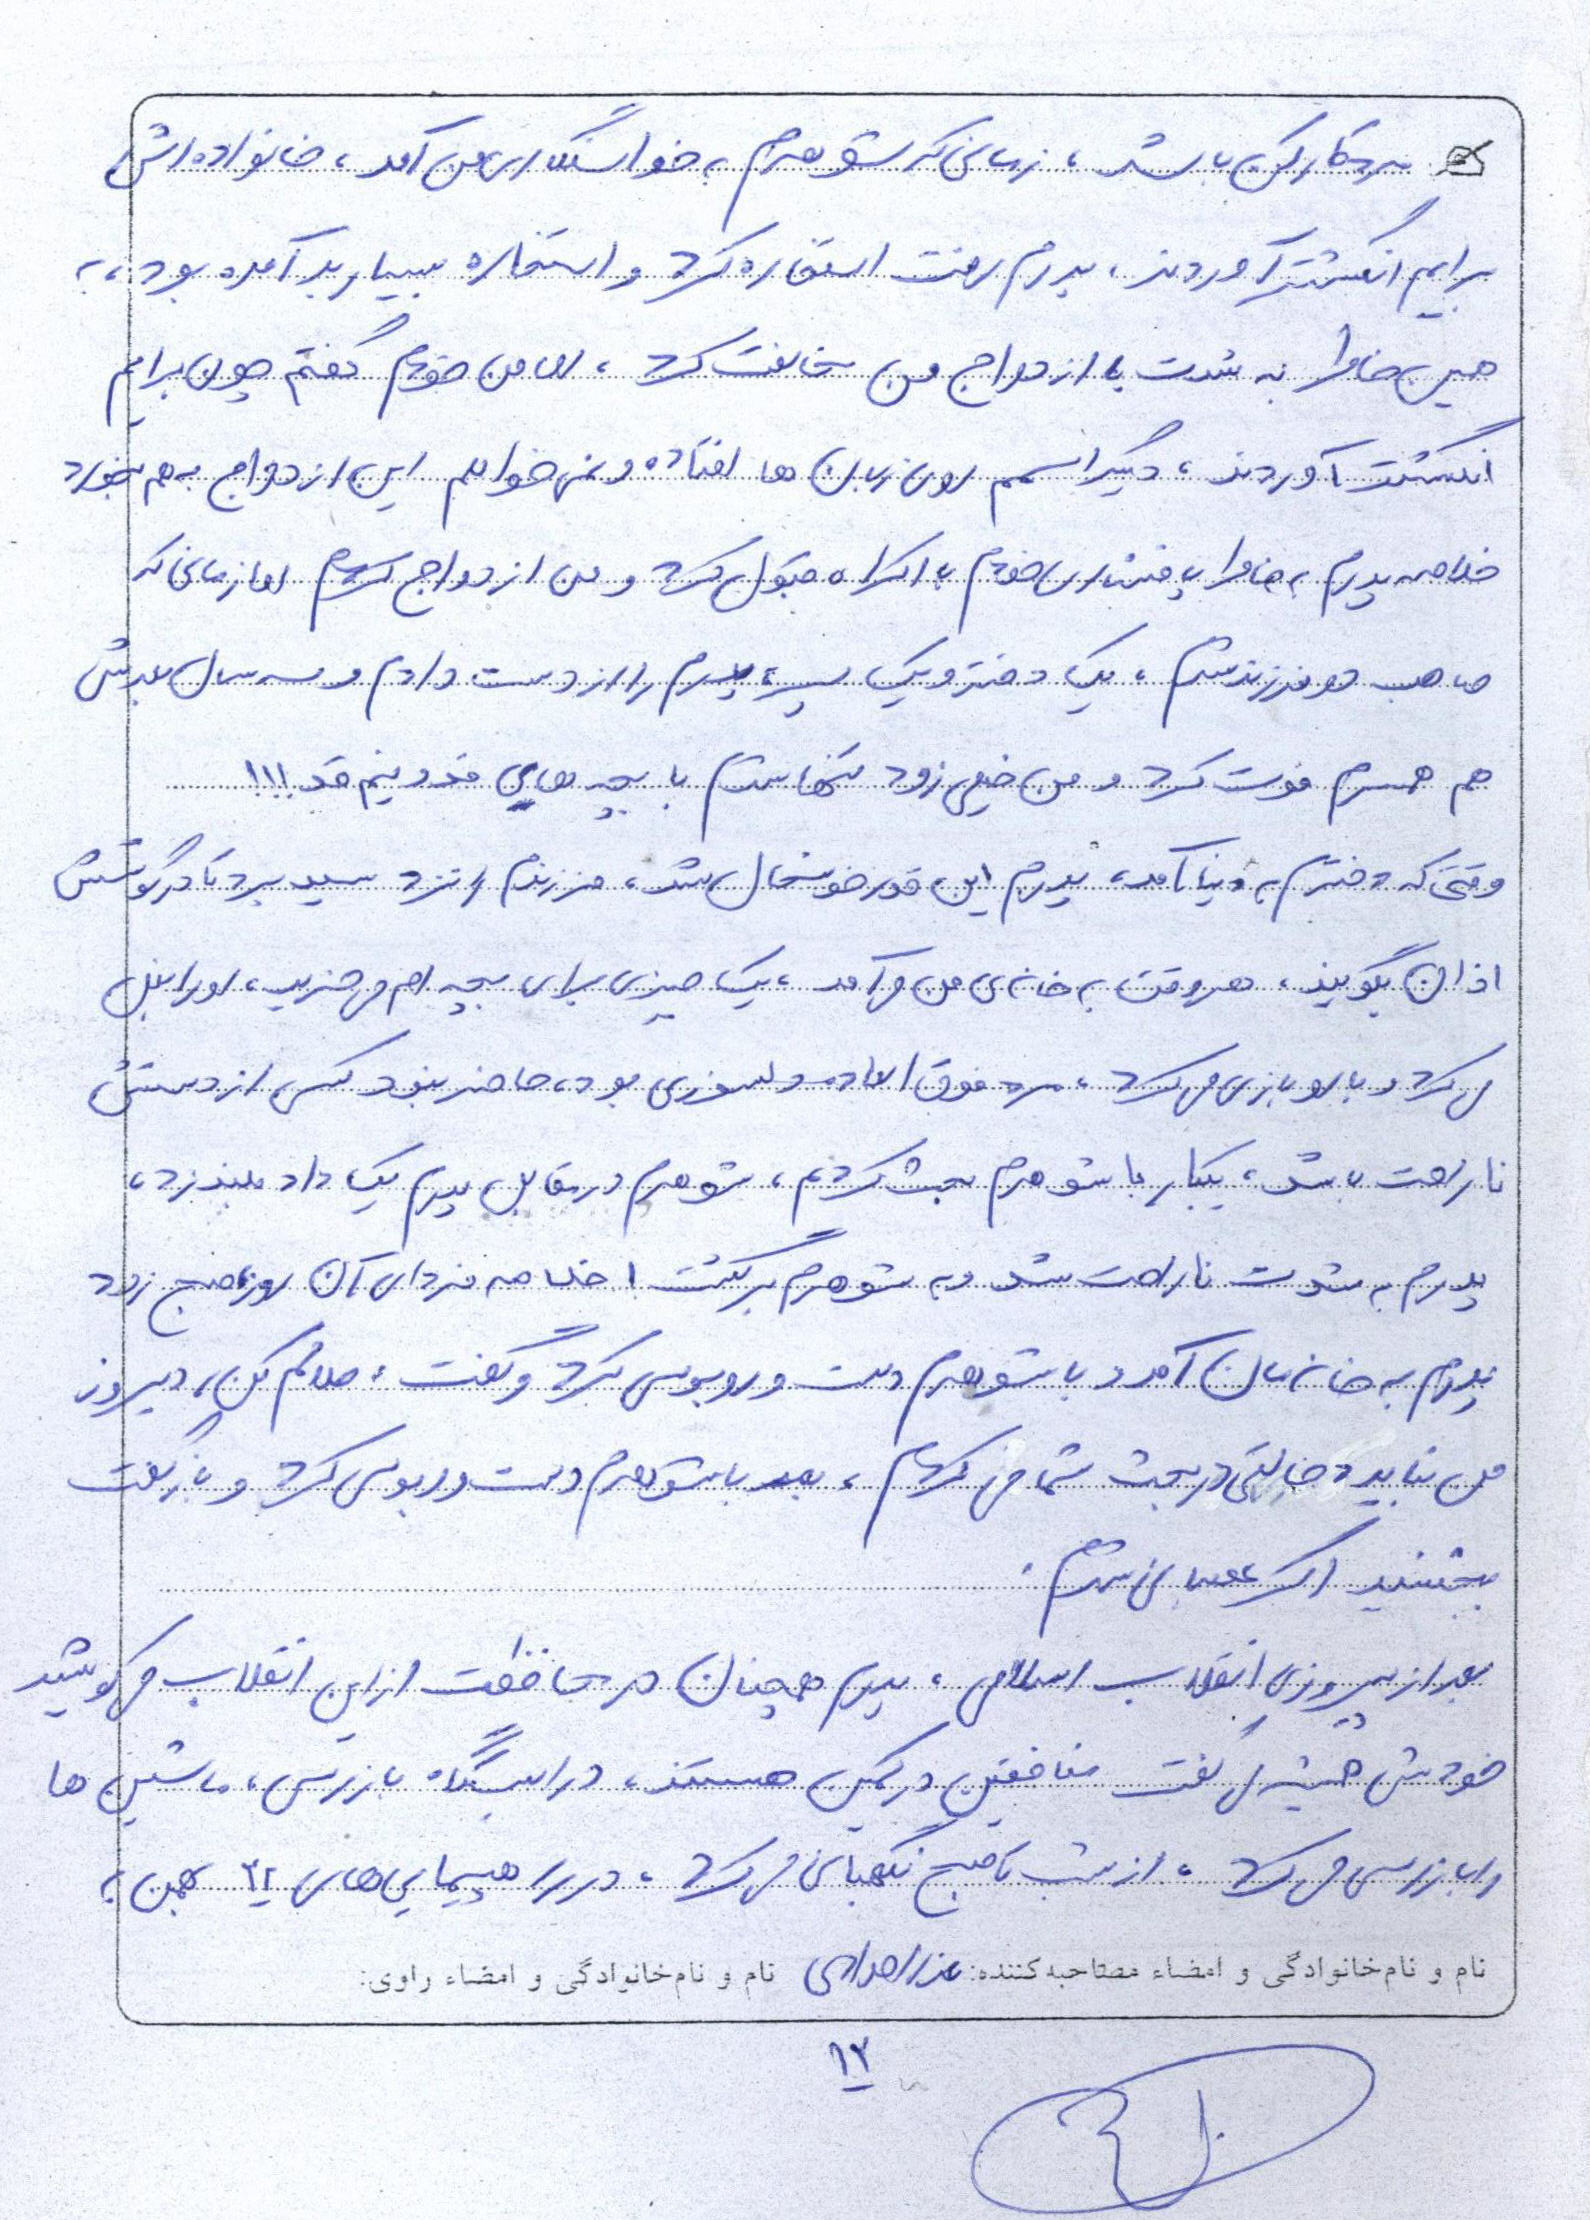 مرد کارکن باشد، زمانی که شوهرم به خواستگاری من آمد، خانواده اش
برایم انگشتر آوردند، پدرم رفت استخاره کرد و استخاره بسیار بد آمده بود، به
همین خاطر به شدت با ازدواج من مخالفت کرد، اما من خودم گفتم چون برایم
انگشتر آوردند، دیگر اسمم روی زبان ها افتاده و نمی خواهم این ازدواج به هم بخورد
خلاصه پدرم به خاطر پافشاری خودم با اکراه قبول کرد و من ازدواج کردم اما زمانی که
صاحب دو فرزند شدم، یک دختر و یک پسر، پدرم را از دست دادم و سه سال بعدش
هم همسرم فوت کرد و من خیلی زود تنها شدم با بچه هایی قد و نیم قد!!!
وقتی که دخترم به دنیا آمد، پدرم این قدر خوشحال شد، فرزندم را نزد سید برد تا در گوشش
اذان بگویند، هر وقت به خانه ی من می آمد، یک چیزی برای بچه ام می خرید، او را بغل
می کرد و با او بازی می کرد، مرد فوق العاده دلسوزی بود، حاضر نبود کسی از دستش
ناراحت باشد، یکبار با شوهرم بحث کردیم، شوهرم در مقابل پدرم یک داد بلند زد،
پدرم به شدت ناراحت شد و به شوهرم برگشت! خلاصه فردای آن روز صبح زود
پدرم به خانه مان آمد و با شوهرم دست و روبوسی کرد و گفت، حلالم کن، دیروز
من نباید دخالتی در بحث شما می کردم، بعد با شوهرم دست و روبوسی کرد و باز گفت
ببخشید اگر عصبانی شدم.
بعد از پیروزی انقلاب اسلامی، پدرم همچنان در محافظت از این انقلاب می کوشید
خودش همیشه می گفت منافقین در کمین هستند، در ایستگاه بازرسی، ماشین ها
را بازرسی می کرد، از شب تا صبح نگهبانی می کرد، در راهپیمایی های ۲۲ بهمن به
نام و نام خانوادگی و امضاء مصاحبه کننده: عذرا مرادی نام و نام خانوادگی و امضاء راوی:
۱۲